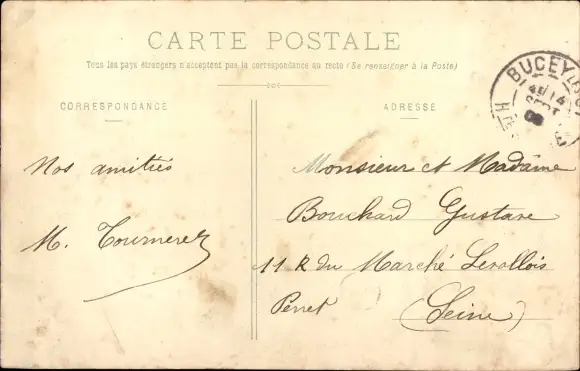 CARTE POSTALE
Tous les pays étrangers n'acceptent pas la correspondance au recto (Se renseigner à la Poste)
CORRESPONDANCE
ADRESSE
BUCEY
14
SEPT
Nos amitiés
M. Tournerez
Monsieur et Madame
Bouchard Gustave
11 R du Marché Levallois
Perret (Seine)